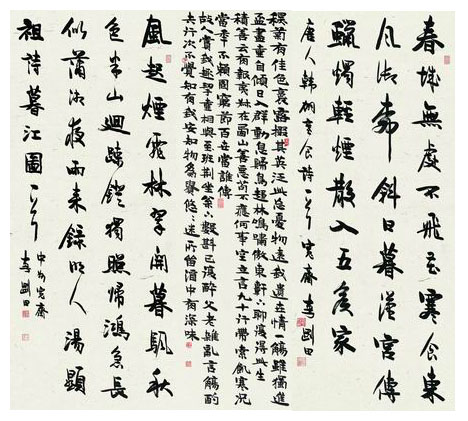 春城無處不飛花寒食東
風御柳斜日暮漢宮傳
蠟燭輕煙散入五侯家
唐人韓翃寒食詩一首 寬齋李剛田
秋菊有佳色裛露掇其英汎此忘憂物遠我遺世情一觴雖獨進
盃盡壺自傾日入群動息歸鳥趨林鳴嘯傲東軒下聊復得此生
積善云有報夷叔在西山善惡苟不應何事空立言九十行帶索飢寒況
當年不賴固窮節百世當誰傳
故人賞我趣挈壺相與至班荊坐松下數斟已復醉父老雜亂言觴酌
失行次不覺知有我安知物為貴悠悠迷所留酒中有深味
風起煙霏林翠開暮颿秋
色半山迴踈鐙獨照歸鴻急長
似瀟湘夜雨來錄明人湯顯
祖詩暮江圖一首 中州寬齋李剛田